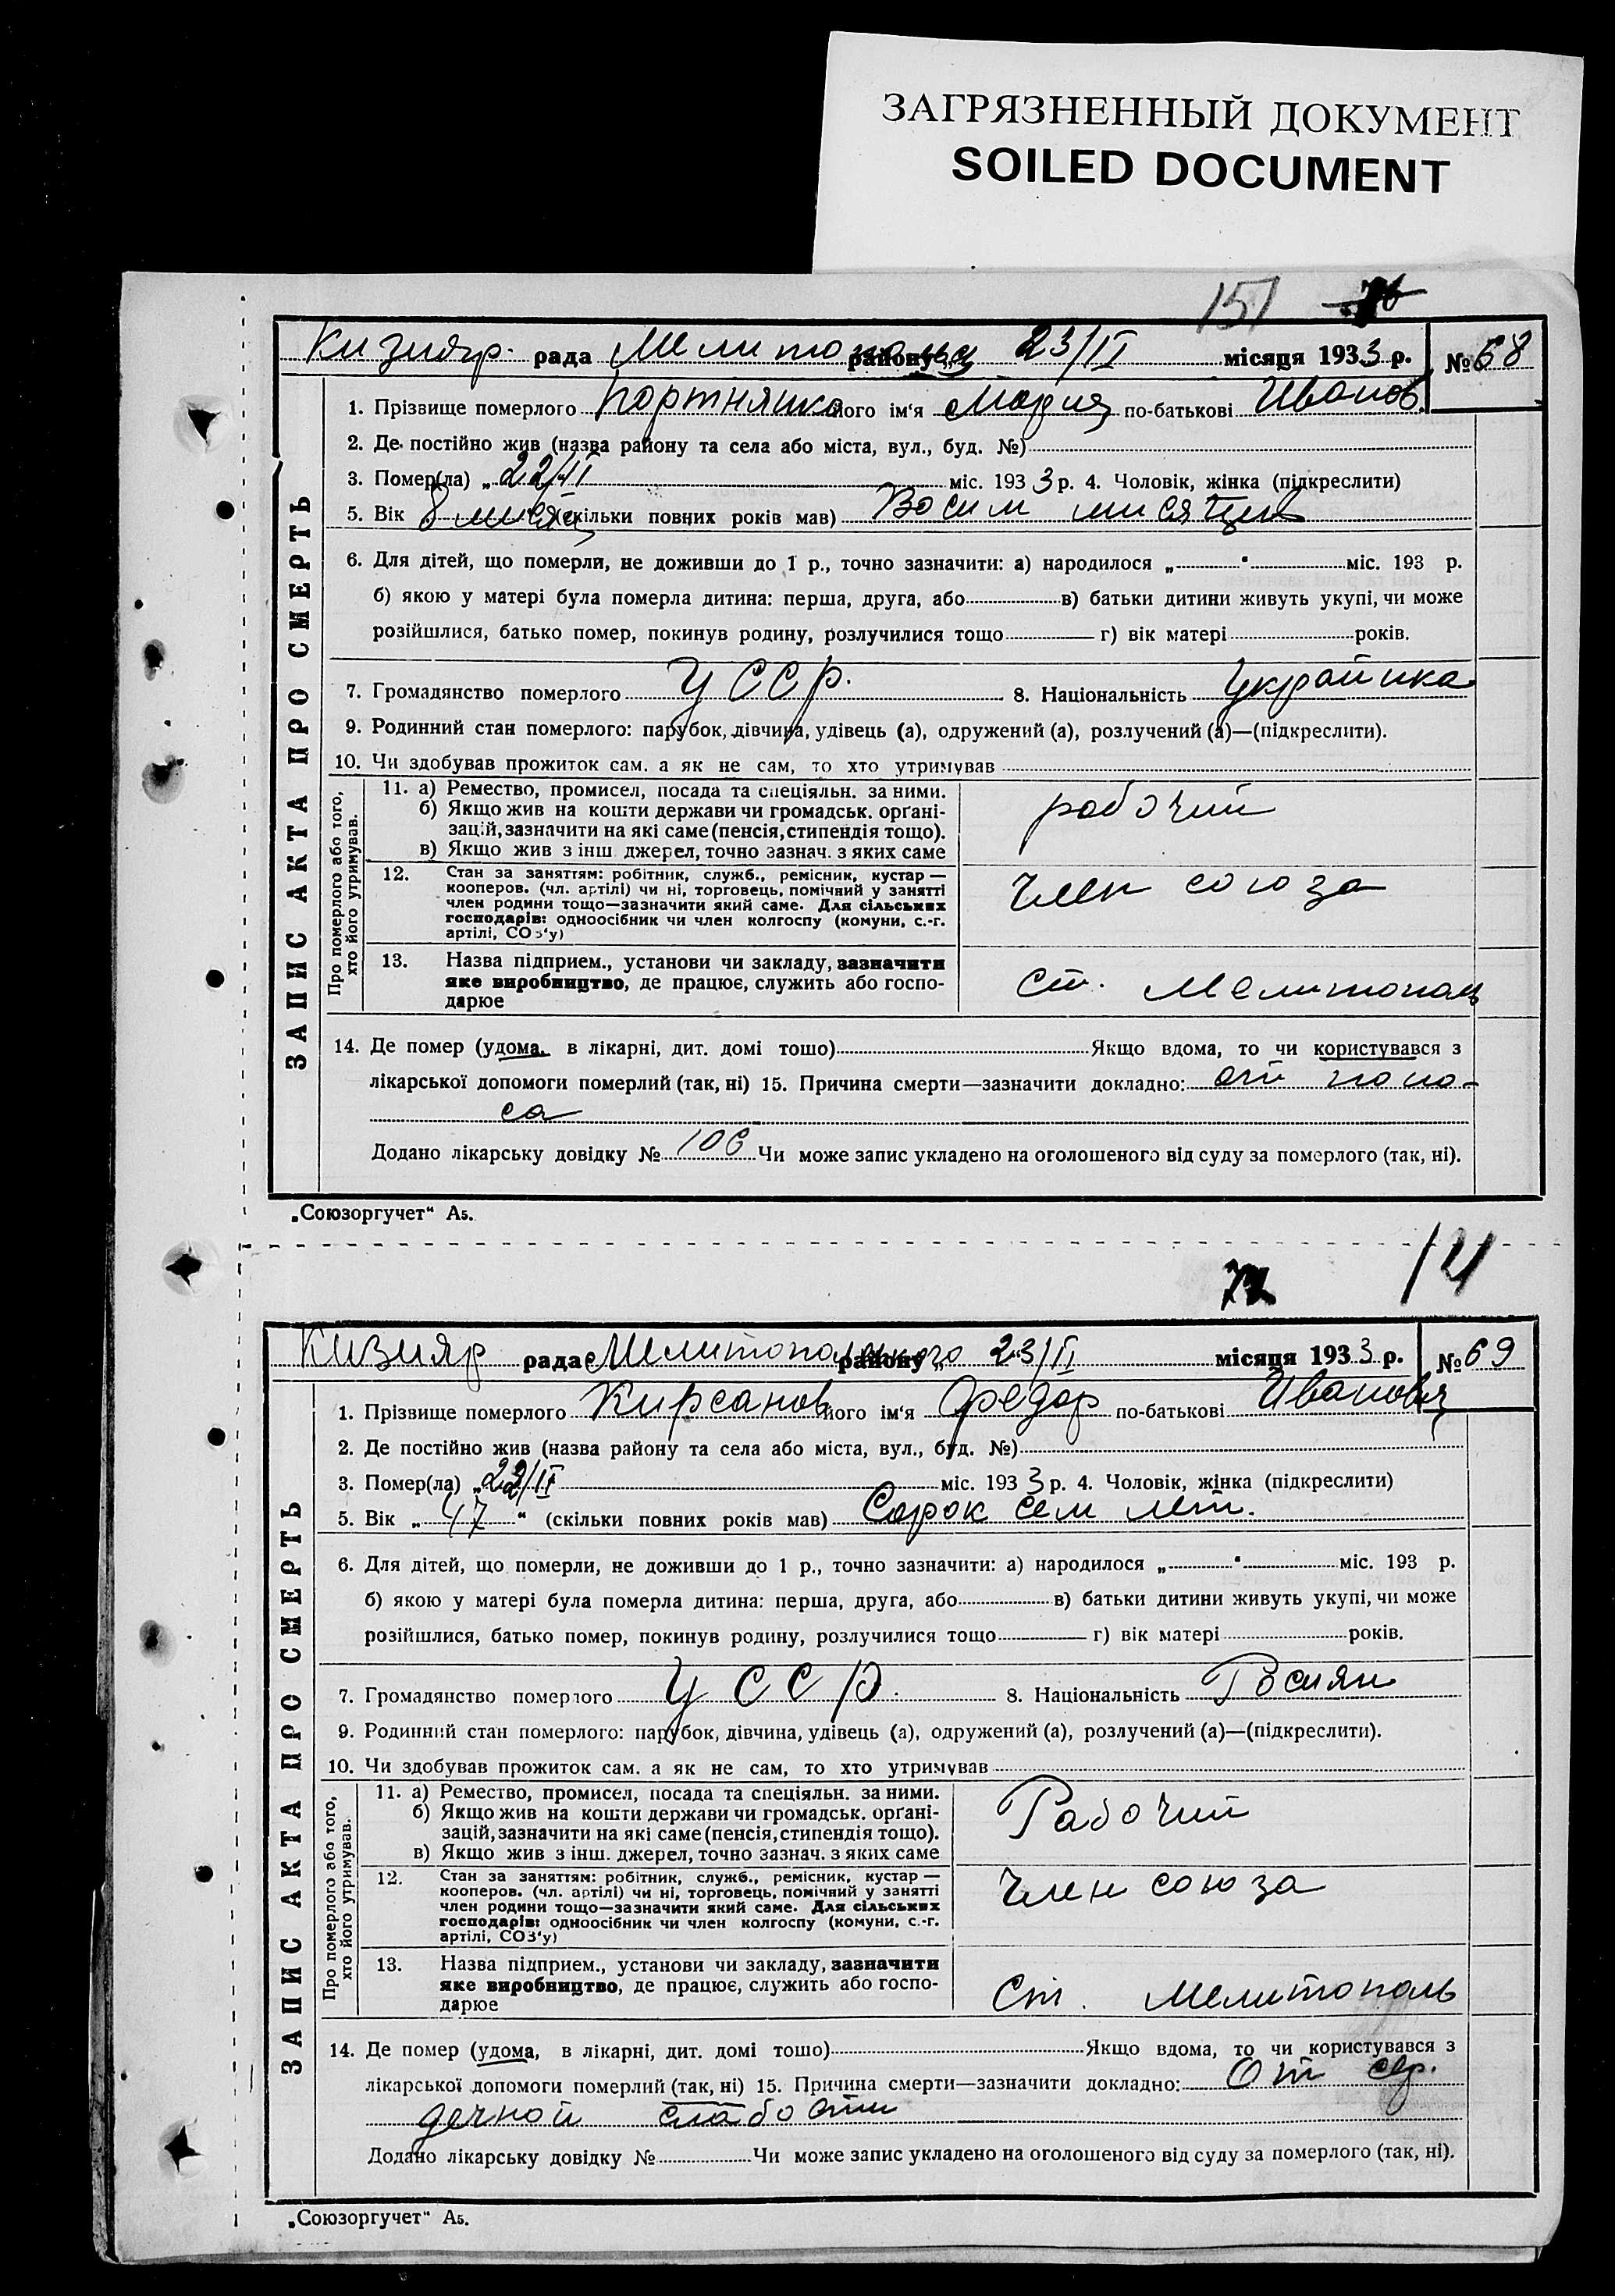 ЗАГРЯЗНЕННЫЙ ДОКУМЕНТ
SOILED DOCUMENT
151
Кизияр. рада Мелитопольц району 23/II місяця 1933 р. № 68
ЗАПИС АКТА ПРО СМЕРТЬ
1. Прізвище померлого Портнянко його ім'я Мария по-батькові Иванов.
2. Де постійно жив (назва району та села або міста, вул., буд. №)
3. Помер(ла) „ 22/II міс. 1933 р. 4. Чоловік, жінка (підкреслити)
5. Вік 8 мисяц (скільки повних років мав) Восим мисяцив
6. Для дітей, що померли, не доживши до 1 р., точно зазначити: а) народилося „ " міс. 193 р.
б) якою у матері була померла дитина: перша, друга, або в) батьки дитини живуть укупі, чи може
розійшлися, батько помер, покинув родину, розлучилися тощо г) вік матері років.
7. Громадянство померлого УССР. 8. Національність Украинка
9. Родинний стан померлого: парубок, дівчина, удівець (а), одружений (а), розлучений (а)—(підкреслити).
10. Чи здобував прожиток сам. а як не сам, то хто утримував
Про померлого або того, хто його утримував.
11. а) Ремество, промисел, посада та спеціяльн. за ними.
б) Якщо жив на кошти держави чи громадськ. орґані-
зацій, зазначити на які саме (пенсія, стипендія тощо).
в) Якщо жив з інш. джерел, точно зазнач. з яких саме
рабочий
12. Стан за заняттям: робітник, служб., ремісник, кустар —
кооперов. (чл. артілі) чи ні, торговець, помічний у занятті
член родини тощо—зазначити який саме. Для сільських
господарів: одноосібник чи член колгоспу (комуни, с.-г.
артілі, СОЗ'у)
член союза
13. Назва підприєм., установи чи закладу, зазначити
яке виробництво, де працює, служить або госпо-
дарює
ст. Мелитополь
14. Де помер (удома, в лікарні, дит. домі тошо) Якщо вдома, то чи користувався з
лікарської допомоги померлий (так, ні) 15. Причина смерти—зазначити докладно: от поно-
са
Додано лікарську довідку № 106 Чи може запис укладено на оголошеного від суду за померлого (так, ні).
„Союзоргучет" А5.
Кизияр рада Мелитопольского району „ 23/II місяця 1933 р. № 69
ЗАПИС АКТА ПРО СМЕРТЬ
1. Прізвище померлого Кирсанов його ім'я Федор по-батькові Иванович
2. Де постійно жив (назва району та села або міста, вул., буд. №)
3. Помер(ла) „ 22/II міс. 1933 р. 4. Чоловік, жінка (підкреслити)
5. Вік „ 47 " (скільки повних років мав) Сорок сем лет.
6. Для дітей, що померли, не доживши до 1 р., точно зазначити: а) народилося „ " міс. 193 р.
б) якою у матері була померла дитина: перша, друга, або в) батьки дитини живуть укупі, чи може
розійшлися, батько помер, покинув родину, розлучилися тощо г) вік матері років.
7. Громадянство померлого УССР. 8. Національність Росиян
9. Родинний стан померлого: парубок, дівчина, удівець (а), одружений (а), розлучений (а)—(підкреслити).
10. Чи здобував прожиток сам. а як не сам, то хто утримував
Про померлого або того, хто його утримував.
11. а) Ремество, промисел, посада та спеціяльн. за ними.
б) Якщо жив на кошти держави чи громадськ. орґані-
зацій, зазначити на які саме (пенсія, стипендія тощо).
в) Якщо жив з інш. джерел, точно зазнач. з яких саме
Рабочий
12. Стан за заняттям: робітник, служб., ремісник, кустар —
кооперов. (чл. артілі) чи ні, торговець, помічний у занятті
член родини тощо—зазначити який саме. Для сільських
господарів: одноосібник чи член колгоспу (комуни, с.-г.
артілі, СОЗ'у)
член союза
13. Назва підприєм., установи чи закладу, зазначити
яке виробництво, де працює, служить або госпо-
дарює
ст. Мелитополь
14. Де помер (удома, в лікарні, дит. домі тошо) Якщо вдома, то чи користувався з
лікарської допомоги померлий (так, ні) 15. Причина смерти—зазначити докладно: От сер.
дечной слабости
Додано лікарську довідку № Чи може запис укладено на оголошеного від суду за померлого (так, ні).
„Союзоргучет" А5.